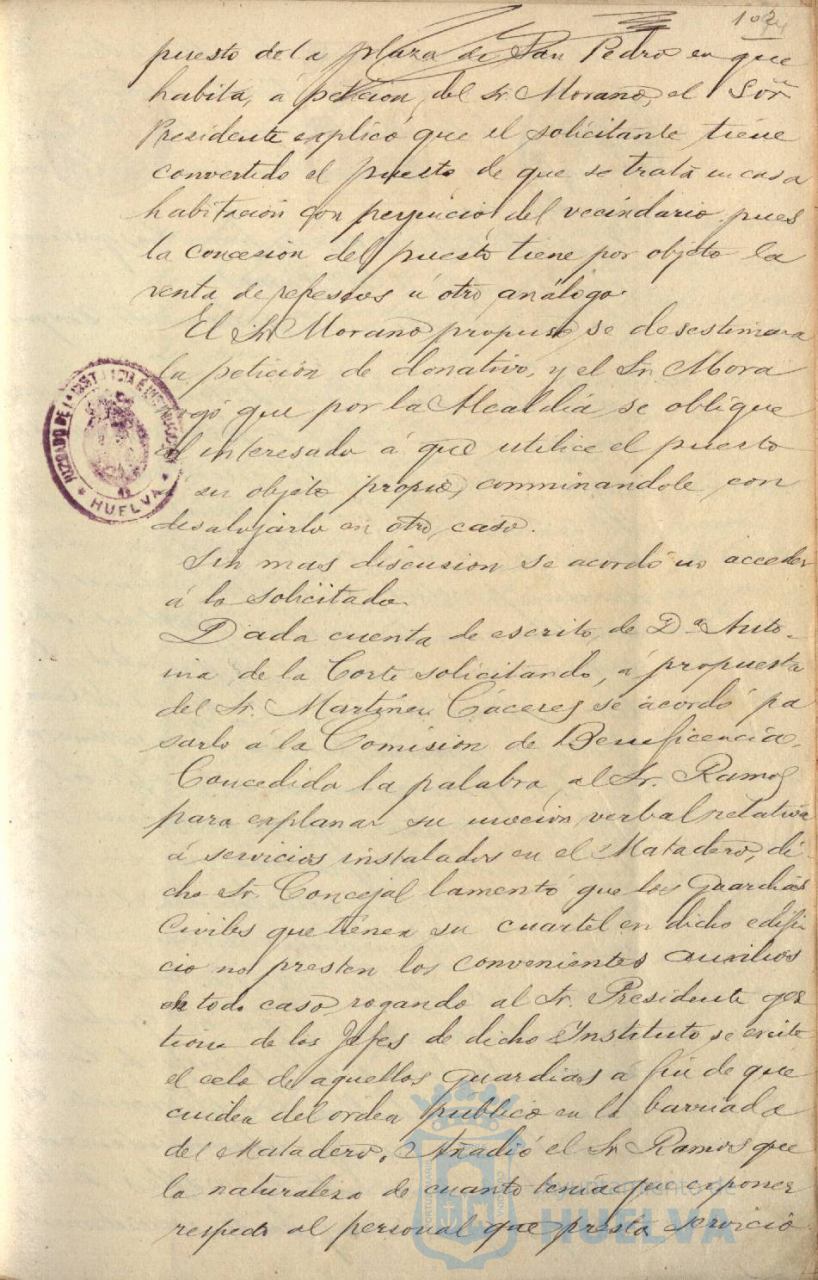 puesto de la plaza de San Pedro en que
habita, á petición del Sr. Morano, el Sor
Presidente explicó que el solicitante tiene
convertido el puesto de que se trata en casa
habitación con perjuicio del vecindario, pues
la concesión del puesto tiene por objeto la
venta de refrescos ú otro análogo.
El Sr. Morano propuso se desestimara
la petición de donativo, y el Sr. Mora
rogó que por la Alcaldía, se obligue
al interesado á que utilice el puesto
á su objeto propio, conminandole con
desalojarlo en otro caso.
Sin mas discusion se acordó no acceder
á lo solicitado.
Dada cuenta de escrito de Dª Anto-
nia de la Corte solicitando, á propuesta
del Sr. Martínez Cáceres se acordó pa
sarlo á la Comisión de Beneficencia.
Concedida la palabra al Sr. Ramos
para explanar su moción verbal relativa
á servicios instalados en el Matadero, di-
cho Sr. Concejal lamentó que los guardias
Civiles que tienen su cuartel en dicho edifi-
cio no presten los convenientes auxilios
en todo caso, rogando al Sr. Presidente ges
tione de los Jefes de dicho Instituto se excite
el celo de aquellos guardias a fin de que
cuiden del orden publico en la barriada
del Matadero. Añadió el Sr. Ramos que
la naturaleza de cuanto tenia que exponer
respecto al personal que presta servicio
JUZGADO DE 1ª INSTANCIA E INSTRUCCIÓN
HUELVA
Ayuntamiento de
HUELVA